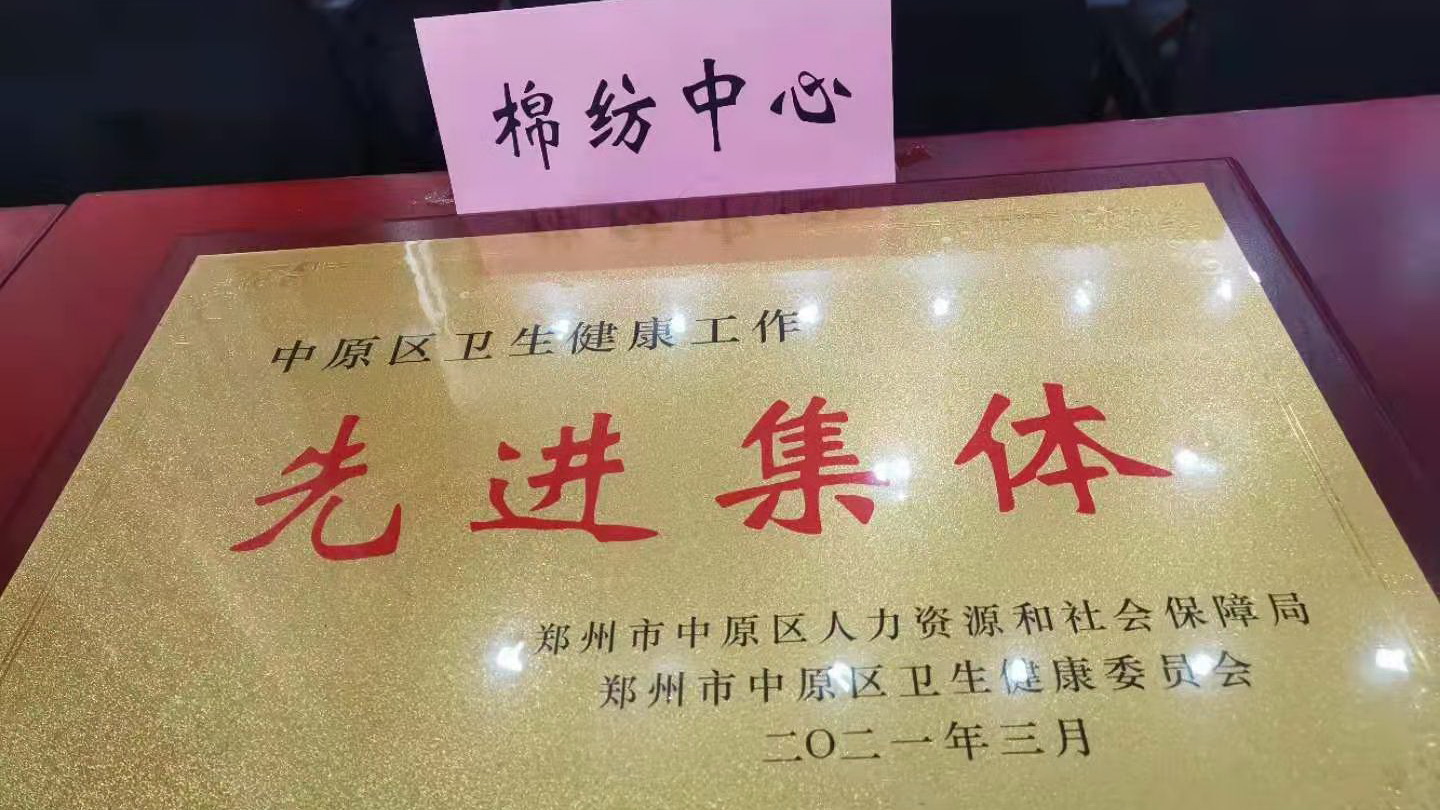 棉纺中心
中原区卫生健康工作
先进集体
郑州市中原区人力资源和社会保障局
郑州市中原区卫生健康委员会
二〇二一年三月